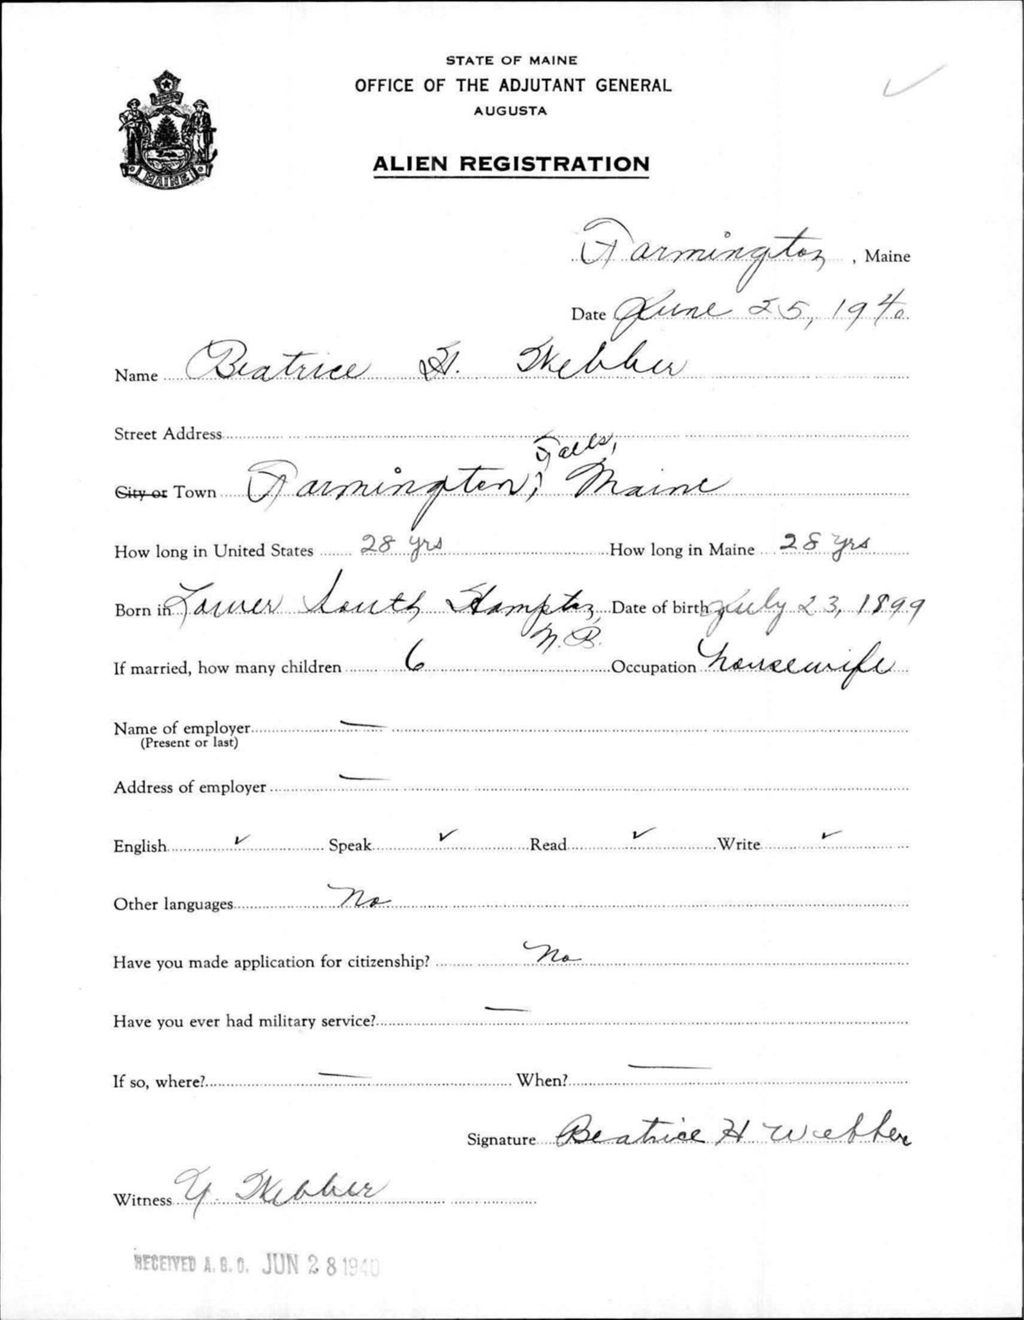 STATE OF MAINE
OFFICE OF THE ADJUTANT GENERAL
AUGUSTA
ALIEN REGISTRATION
MAINE
Farmington, Maine
Date June 25, 1940
Name Beatrice H. Webber
Street Address
Falls,
City or Town Farmington, Maine
How long in United States 28 yrs How long in Maine 28 yrs
Born in Lower South Hampton Date of birth July 23, 1899
N.B.
If married, how many children 6 Occupation housewife
Name of employer —
(Present or last)
Address of employer —
English ✓ Speak ✓ Read ✓ Write ✓
Other languages No
Have you made application for citizenship? No
Have you ever had military service? —
If so, where? — When? —
Signature Beatrice H Webber
Witness Webber
RECEIVED A.G.O. JUN 28 1940